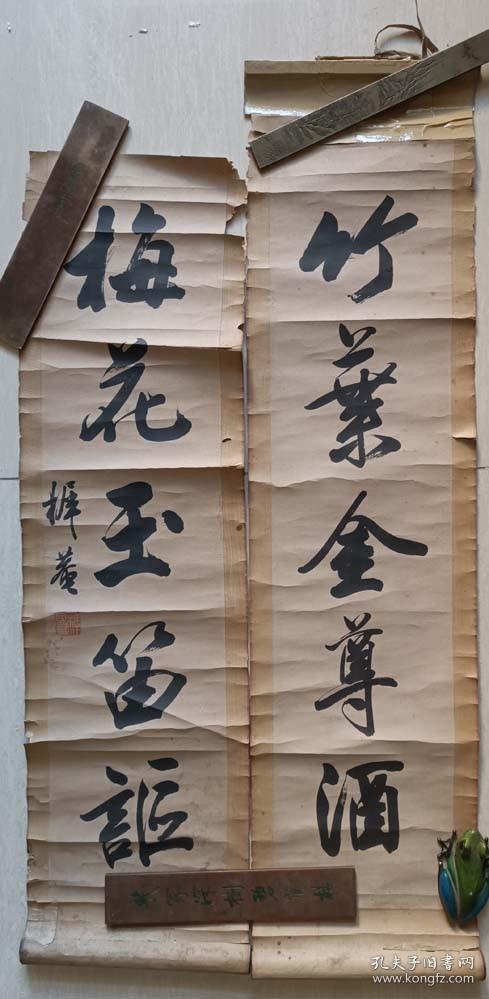 竹葉金尊酒
梅花玉笛謳
樨菴
孔夫子旧书网
www.kongfz.com